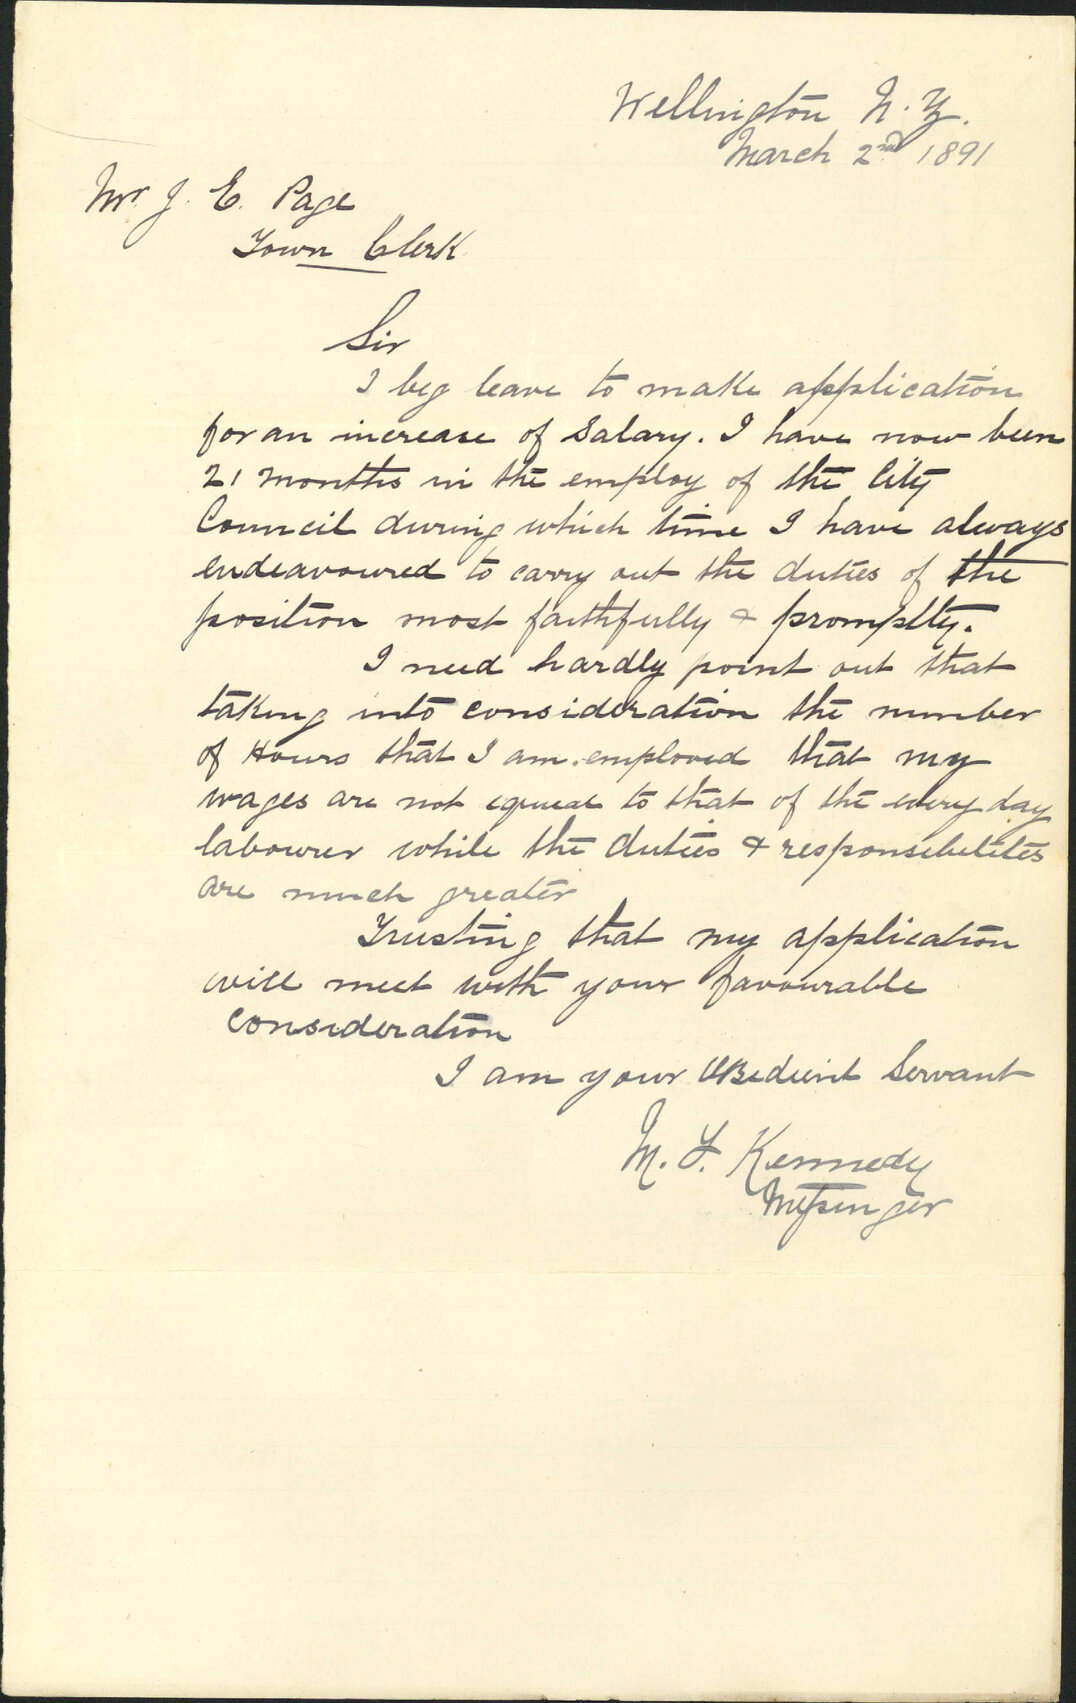 Wellington N. Z.
March 2nd 1891
Mr J. E. Page
Town Clerk
Sir
I beg leave to make application
for an increase of Salary. I have now been
21 months in the employ of the City
Council during which time I have always
endeavoured to carry out the duties of the
position most faithfully & promptly.
I need hardly point out that
taking into consideration the number
of Hours that I am employed that my
wages are not equal to that of the every day
labourer while the duties & responsibilities
are much greater
Trusting that my application
will meet with your favourable
Consideration
I am your OBedient Servant
M. F. Kennedy
Messenger